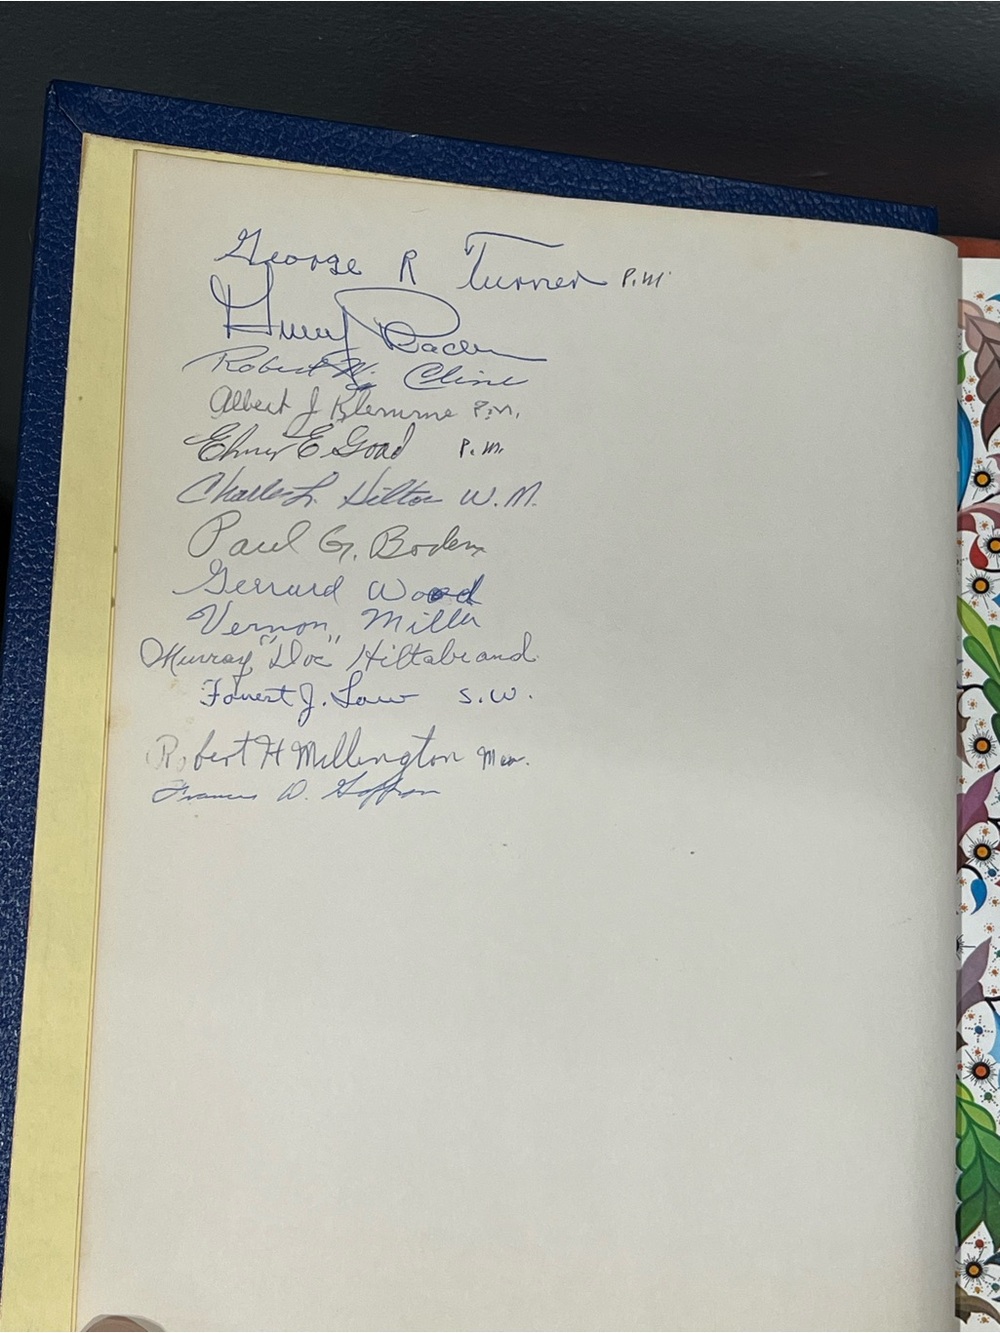 George R Turner P.M.
Robert W. Cline
Albert J Klemme P.M.
Elmer E Goad P.M.
Charles L. Hilton W.M.
Paul G. Boden
Gerrard Wood
Vernon Miller
Murray "Doc" Hiltabrand
Forrest J. Law S.W.
Robert H Millington
Francis D.